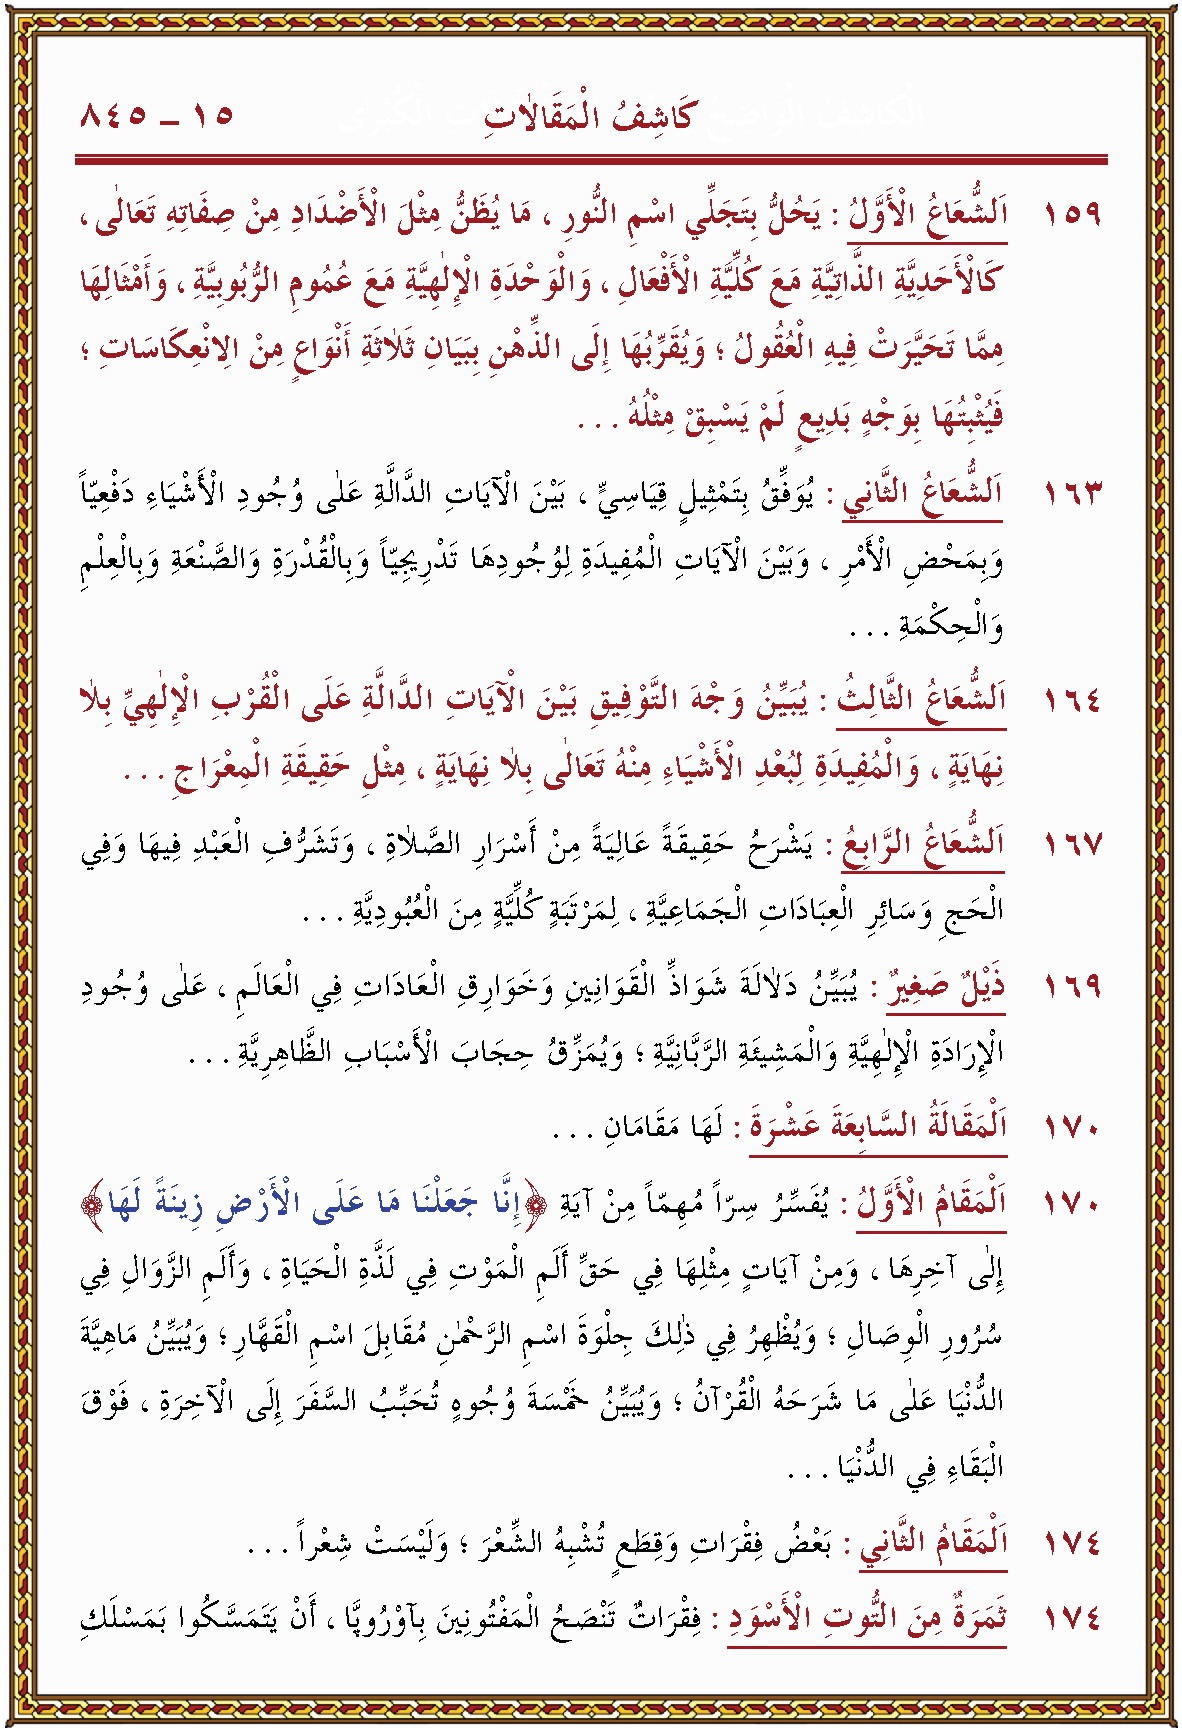 كَاشِفُ الْمَقَالَاتِ ١٥ ـ ٨٤٥
١٥٩ اَلشُّعَاعُ الْأَوَّلُ : يَحُلُّ بِتَجَلِّي اسْمِ النُّورِ ، مَا يُظَنُّ مِثْلَ الْأَضْدَادِ مِنْ صِفَاتِهِ تَعَالٰى ،
كَالْأَحَدِيَّةِ الذَّاتِيَّةِ مَعَ كُلِّيَّةِ الْأَفْعَالِ ، وَالْوَحْدَةِ الْإِلٰهِيَّةِ مَعَ عُمُومِ الرُّبُوبِيَّةِ ، وَأَمْثَالِهَا
مِمَّا تَحَيَّرَتْ فِيهِ الْعُقُولُ ؛ وَيُقَرِّبُهَا إِلَى الذِّهْنِ بِبَيَانِ ثَلَاثَةِ أَنْوَاعٍ مِنْ الِانْعِكَاسَاتِ ؛
فَيُثْبِتُهَا بِوَجْهٍ بَدِيعٍ لَمْ يَسْبِقْ مِثْلُهُ . . .
١٦٣ اَلشُّعَاعُ الثَّانِي : يُوَفِّقُ بِتَمْثِيلٍ قِيَاسِيٍّ ، بَيْنَ الْآيَاتِ الدَّالَّةِ عَلٰى وُجُودِ الْأَشْيَاءِ دَفْعِيّاً
وَبِمَحْضِ الْأَمْرِ ، وَبَيْنَ الْآيَاتِ الْمُفِيدَةِ لِوُجُودِهَا تَدْرِيجِيّاً وَبِالْقُدْرَةِ وَالصَّنْعَةِ وَبِالْعِلْمِ
وَالْحِكْمَةِ . . .
١٦٤ اَلشُّعَاعُ الثَّالِثُ : يُبَيِّنُ وَجْهَ التَّوْفِيقِ بَيْنَ الْآيَاتِ الدَّالَّةِ عَلَى الْقُرْبِ الْإِلٰهِيِّ بِلَا
نِهَايَةٍ ، وَالْمُفِيدَةِ لِبُعْدِ الْأَشْيَاءِ مِنْهُ تَعَالٰى بِلَا نِهَايَةٍ ، مِثْلِ حَقِيقَةِ الْمِعْرَاجِ . . .
١٦٧ اَلشُّعَاعُ الرَّابِعُ : يَشْرَحُ حَقِيقَةً عَالِيَةً مِنْ أَسْرَارِ الصَّلَاةِ ، وَتَشَرُّفِ الْعَبْدِ فِيهَا وَفِي
الْحَجِ وَسَائِرِ الْعِبَادَاتِ الْجَمَاعِيَّةِ ، لِمَرْتَبَةٍ كُلِّيَّةٍ مِنَ الْعُبُودِيَّةِ . . .
١٦٩ ذَيْلٌ صَغِيرٌ : يُبَيِّنُ دَلَالَةَ شَوَاذِّ الْقَوَانِينِ وَخَوَارِقِ الْعَادَاتِ فِي الْعَالَمِ ، عَلٰى وُجُودِ
الْإِرَادَةِ الْإِلٰهِيَّةِ وَالْمَشِيئَةِ الرَّبَّانِيَّةِ ؛ وَيُمَزِّقُ حِجَابَ الْأَسْبَابِ الظَّاهِرِيَّةِ . . .
١٧٠ اَلْمَقَالَةُ السَّابِعَةَ عَشْرَةَ : لَهَا مَقَامَانِ . . .
١٧٠ اَلْمَقَامُ الْأَوَّلُ : يُفَسِّرُ سِرّاً مُهِمّاً مِنْ آيَةِ ﴿إِنَّا جَعَلْنَا مَا عَلَى الْأَرْضِ زِينَةً لَهَا﴾
إِلٰى آخِرِهَا ، وَمِنْ آيَاتٍ مِثْلِهَا فِي حَقِّ أَلَمِ الْمَوْتِ فِي لَذَّةِ الْحَيَاةِ ، وَأَلَمِ الزَّوَالِ فِي
سُرُورِ الْوِصَالِ ؛ وَيُظْهِرُ فِي ذٰلِكَ جِلْوَةَ اسْمِ الرَّحْمٰنِ مُقَابِلَ اسْمِ الْقَهَّارِ ؛ وَيُبَيِّنُ مَاهِيَّةَ
الدُّنْيَا عَلٰى مَا شَرَحَهُ الْقُرْآنُ ؛ وَيُبَيِّنُ خَمْسَةَ وُجُوهٍ تُحَبِّبُ السَّفَرَ إِلَى الْآخِرَةِ ، فَوْقَ
الْبَقَاءِ فِي الدُّنْيَا . . .
١٧٤ اَلْمَقَامُ الثَّانِي : بَعْضُ فِقْرَاتٍ وَقِطَعٍ تُشْبِهُ الشِّعْرَ ؛ وَلَيْسَتْ شِعْراً . . .
١٧٤ ثَمَرَةٌ مِنَ التُّوتِ الْأَسْوَدِ : فِقْرَاتٌ تَنْصَحُ الْمَفْتُونِينَ بِآوْرُوپَّا ، أَنْ يَتَمَسَّكُوا بَمَسْلَكِ